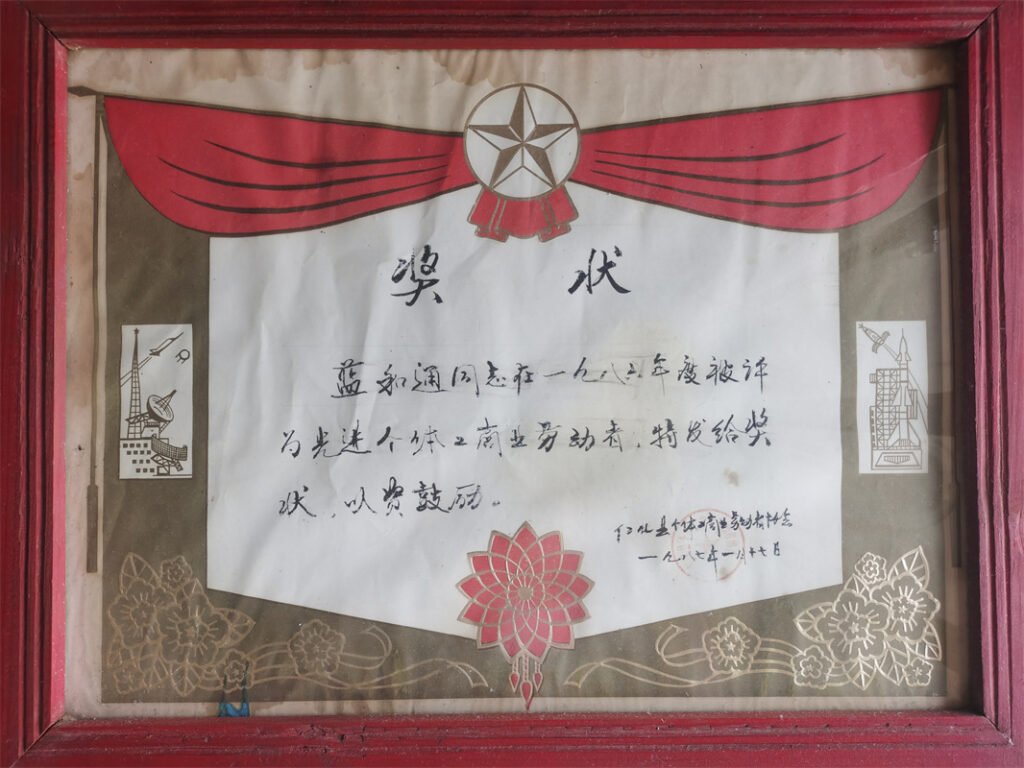 奖 状
蓝和通同志在一九八年度被评
为先进个体工商业劳动者,特发给奖
状,以资鼓励。
仁化县个体工商业劳动者协会
一九八七年一月十七日